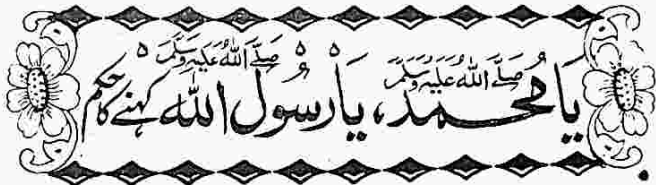 یَا مُحَمَّد صَلَّے اللّٰہُ عَلَیْہِ وَسَلَّمَ، یَا رَسُوْلَ اللّٰہ صَلَّے اللّٰہُ عَلَیْہِ وَسَلَّمَ کہنے کا حکم